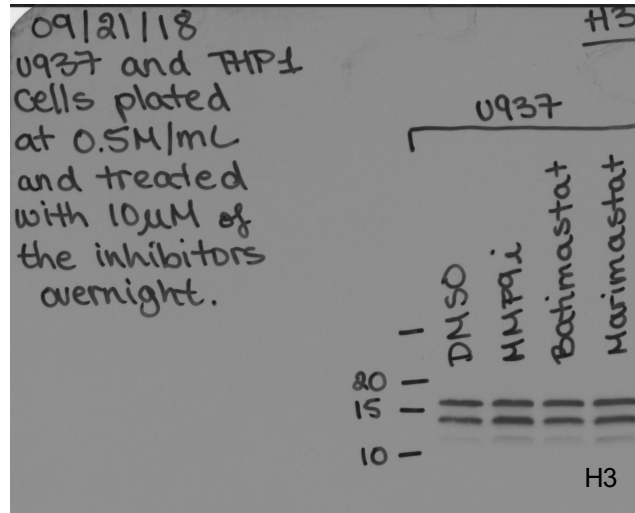 09/21/18
U937 and THP1
cells plated
at 0.5M/mL
and treated
with 10µM of
the inhibitors
overnight.
H3
U937
DMSO
MMP9i
Batimastat
Marimastat
20
15
10
H3